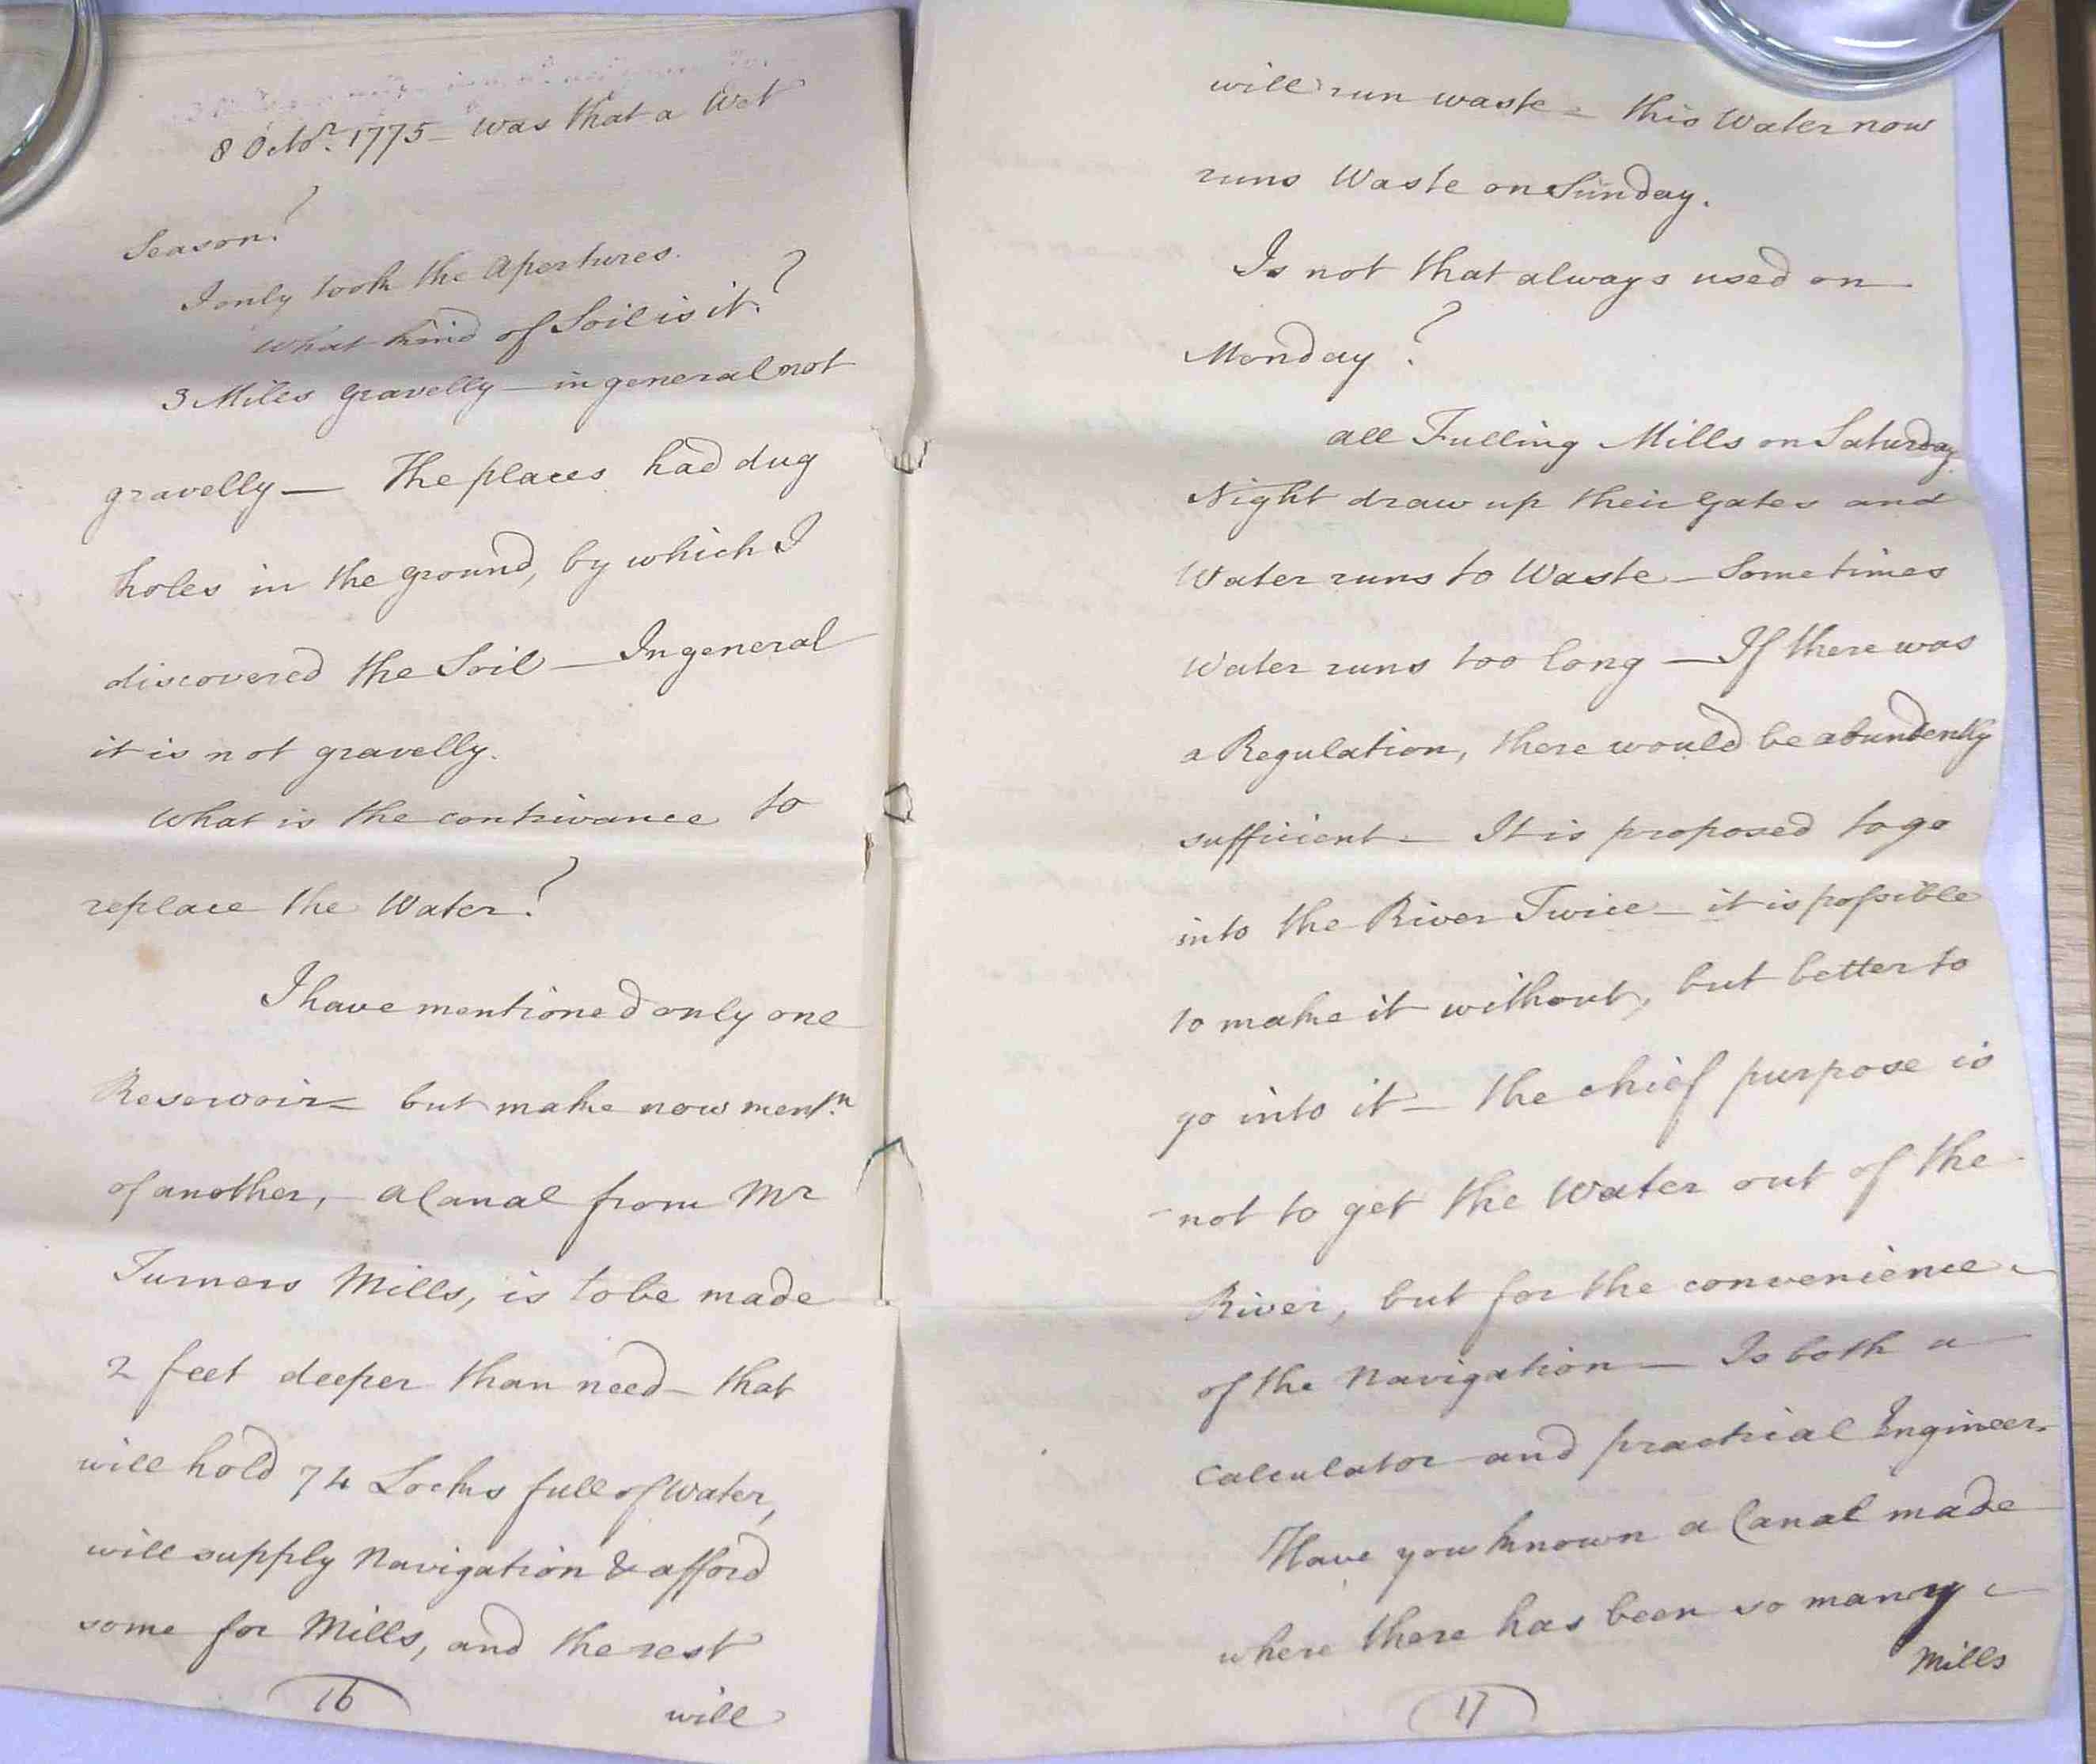 8 Octo.r 1775 – was that a Wet
Season?
I only took the Apertures.
What kind of Soil is it?
3 Miles gravelly – in general not
gravelly — The places had dug
holes in the ground, by which I
discovered the Soil — In general
it is not gravelly.
What is the contrivance to
replace the Water?
I have mentioned only one
Reservoir = but make now ment.n
of another, – a Canal from Mr
Turners Mills, is to be made
2 feet deeper than need – that
will hold 74 Locks full of Water,
will supply Navigation & afford
some for Mills, and the rest
16
will
will run waste = this Water now
runs Waste on Sunday.
Is not that always used on
Monday?
all Fulling Mills on Saturday
Night draw up their Gates and
Water runs to Waste – Sometimes
Water runs too long — If there was
a Regulation, there would be abundently
sufficient – It is proposed to go
into the River Twice – it is possible
to make it without, but better to
go into it – the chief purpose is
not to get the Water out of the
River, but for the convenience
of the Navigation – Is both a
Calculator and practical Engineer.
Have you known a Canal made
where there has been so many
Mills
17